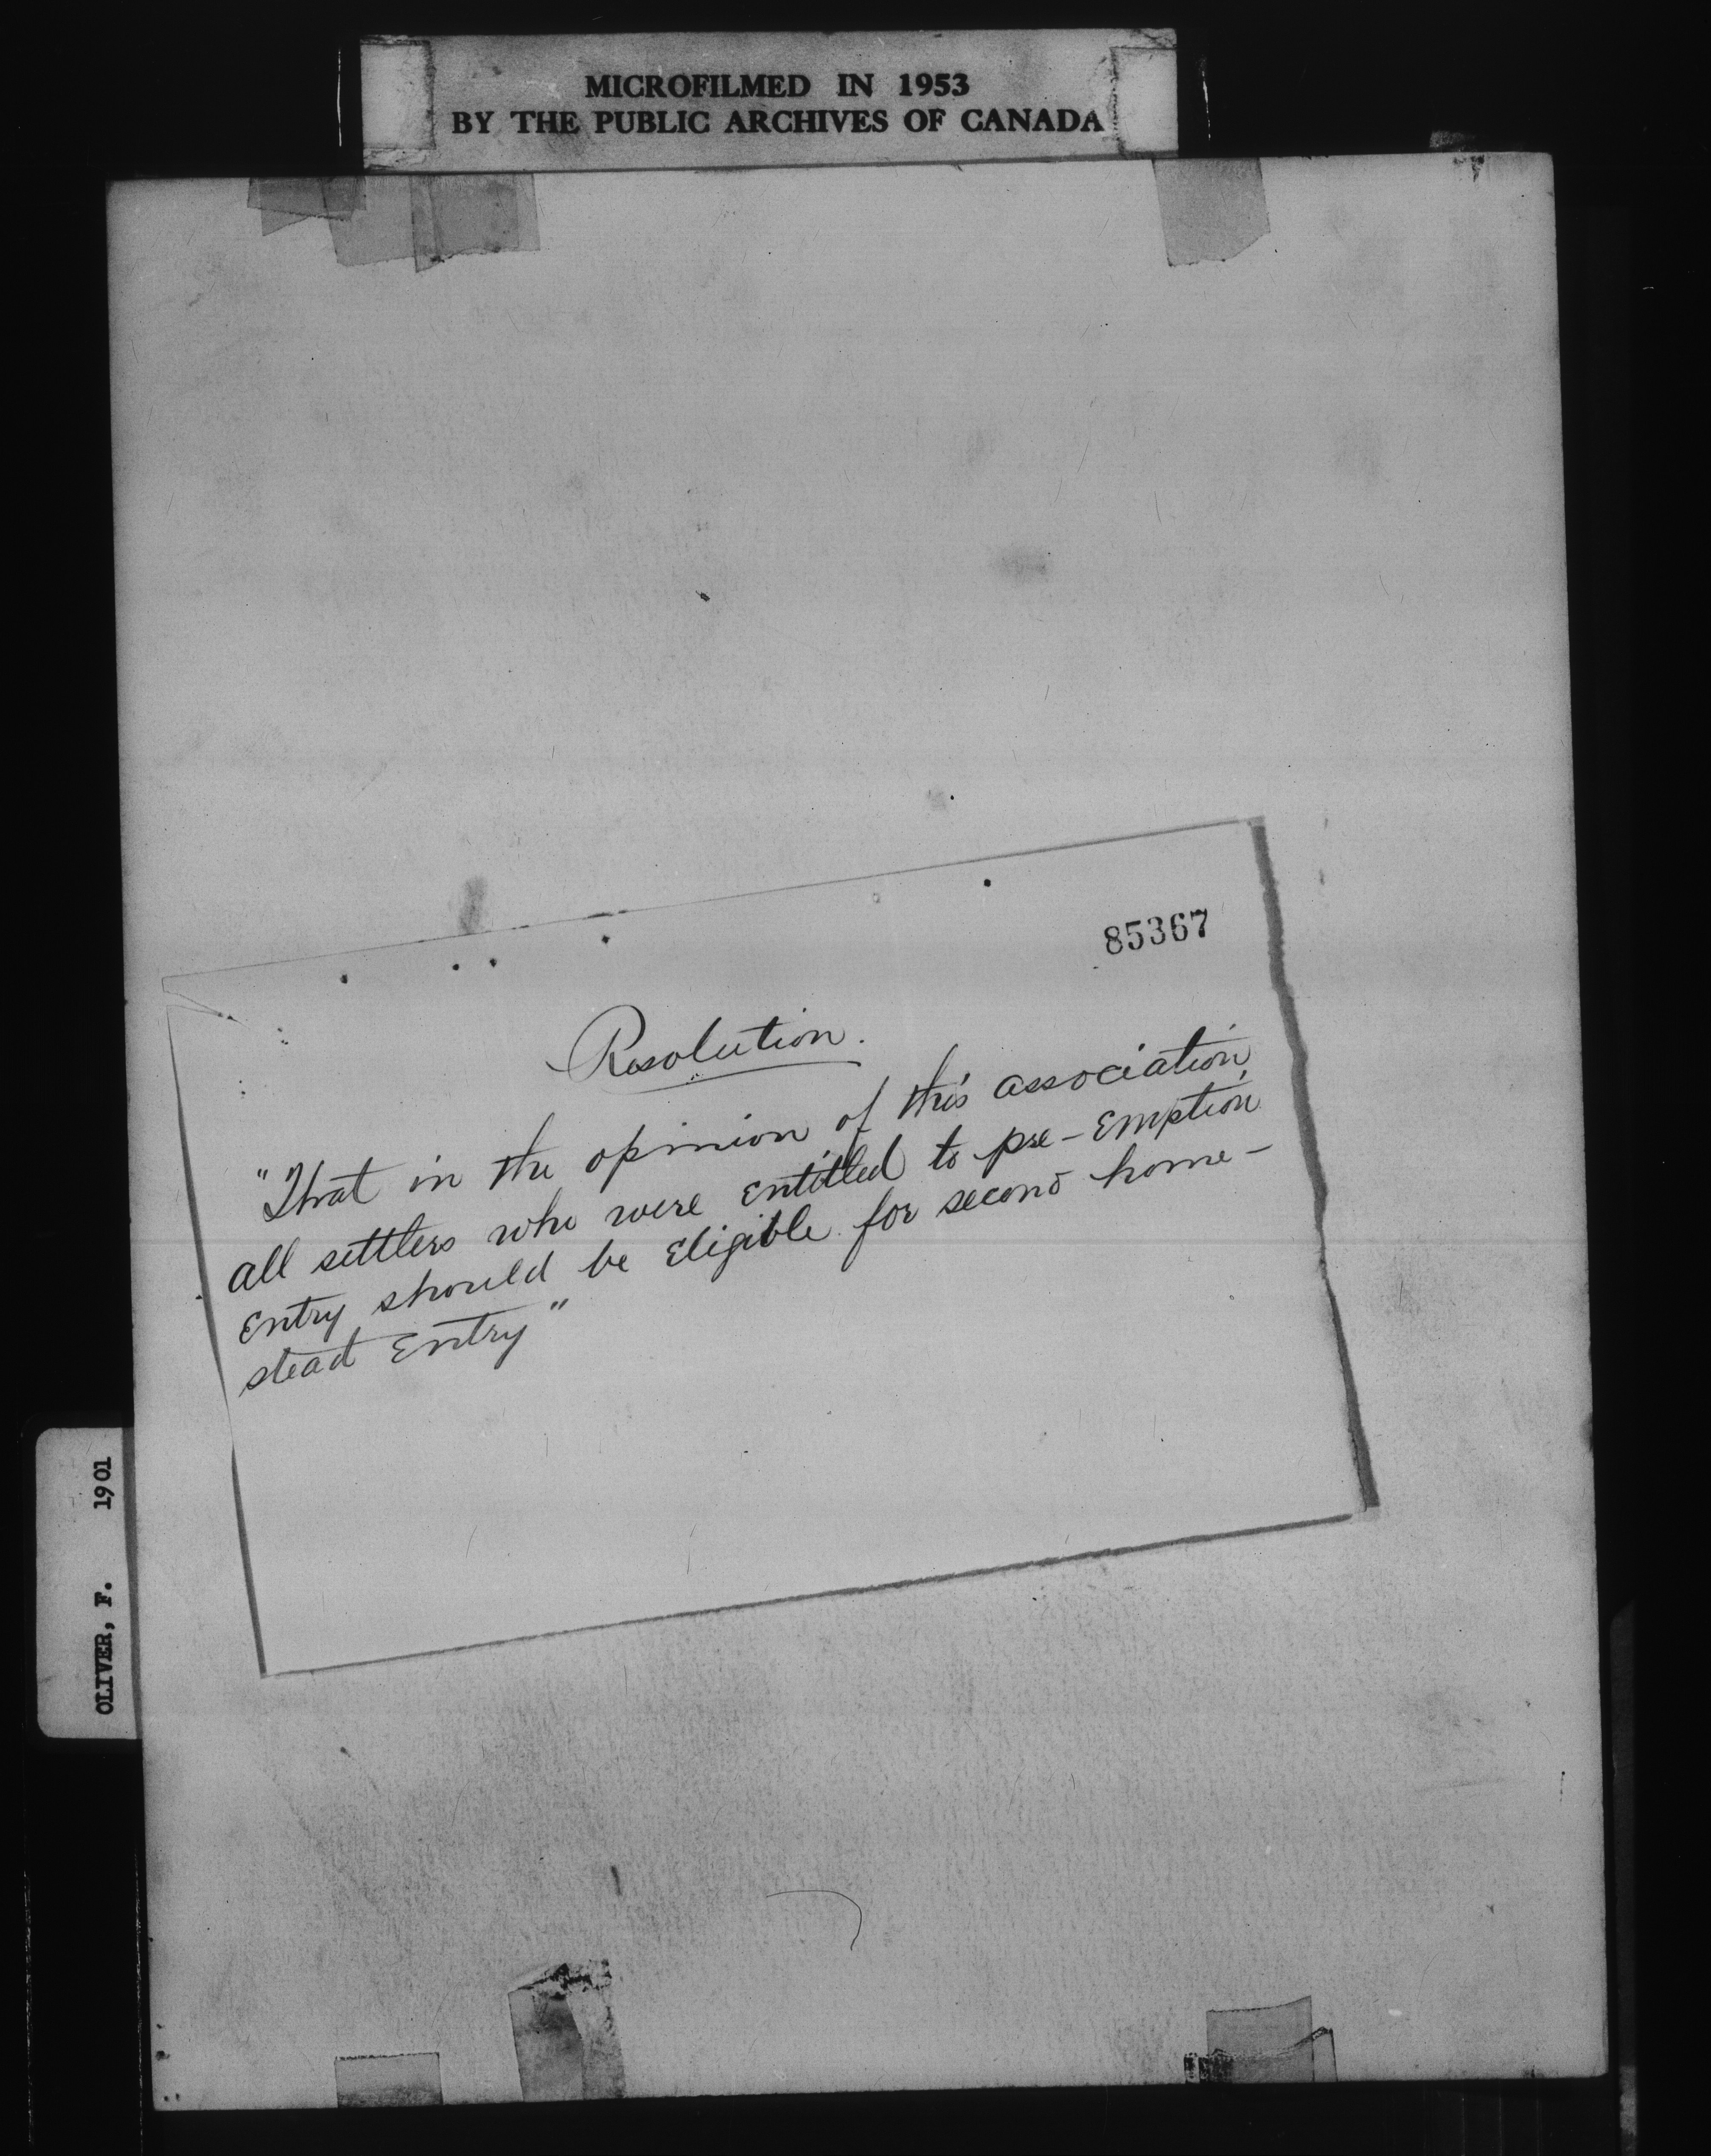 MICROFILMED IN 1953
BY THE PUBLIC ARCHIVES OF CANADA
85367
Resolution.
"That in the opinion of this association,
all settlers who were entitled to pre-emption
entry should be eligible for second home-
stead entry"
OLIVER, F. 1901